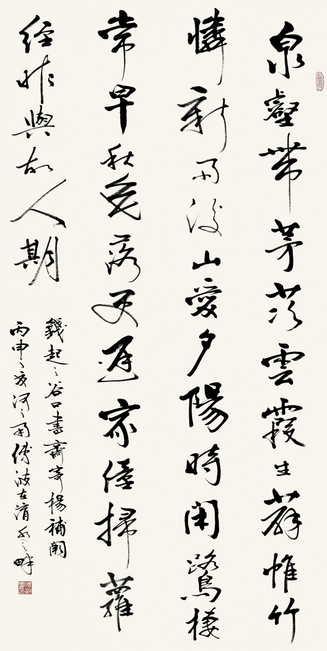 泉壑帶茅茨雲霞生薜帷竹
憐新雨後山愛夕陽時閑鷺棲
常早秋花落更遲家僮掃蘿
徑昨與故人期
錢起之谷口書齋寄楊補闕
丙申之夏河之南波之畔